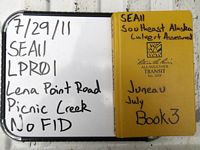 7/29/11
SEA11
LPRO1
Lena Point Road
Picnic Creek
No FID
SEA11
Southeast Alaska
Culvert Assessment
Rite in the Rain
ALL-WEATHER
TRANSIT
Juneau
July
Book 3